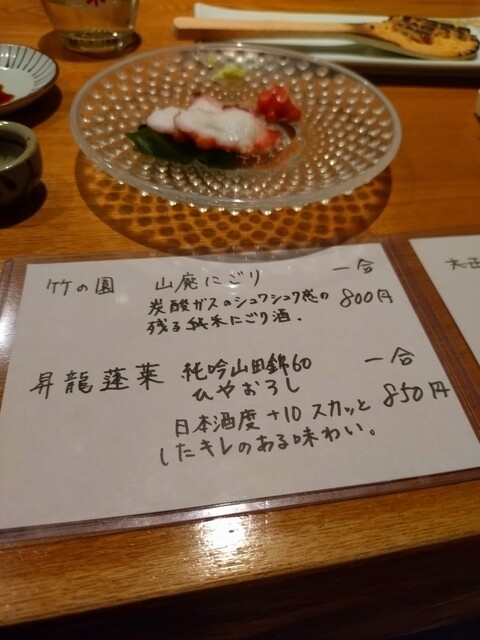 竹の園 山廃にごり 一合
炭酸ガスのシュワシュワ感の 800円
残る純米にごり酒.
昇龍蓬莱 純吟山田錦60 一合
ひやおろし
日本酒度+10 スカッと 850円
したキレのある味わい。